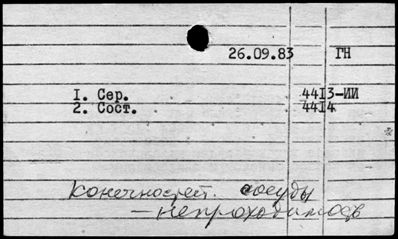 26.09.83 ГН
1. Сер. 4413-ИИ
2. Сост. 4414
Конечностей. сосуды
— непроходимость